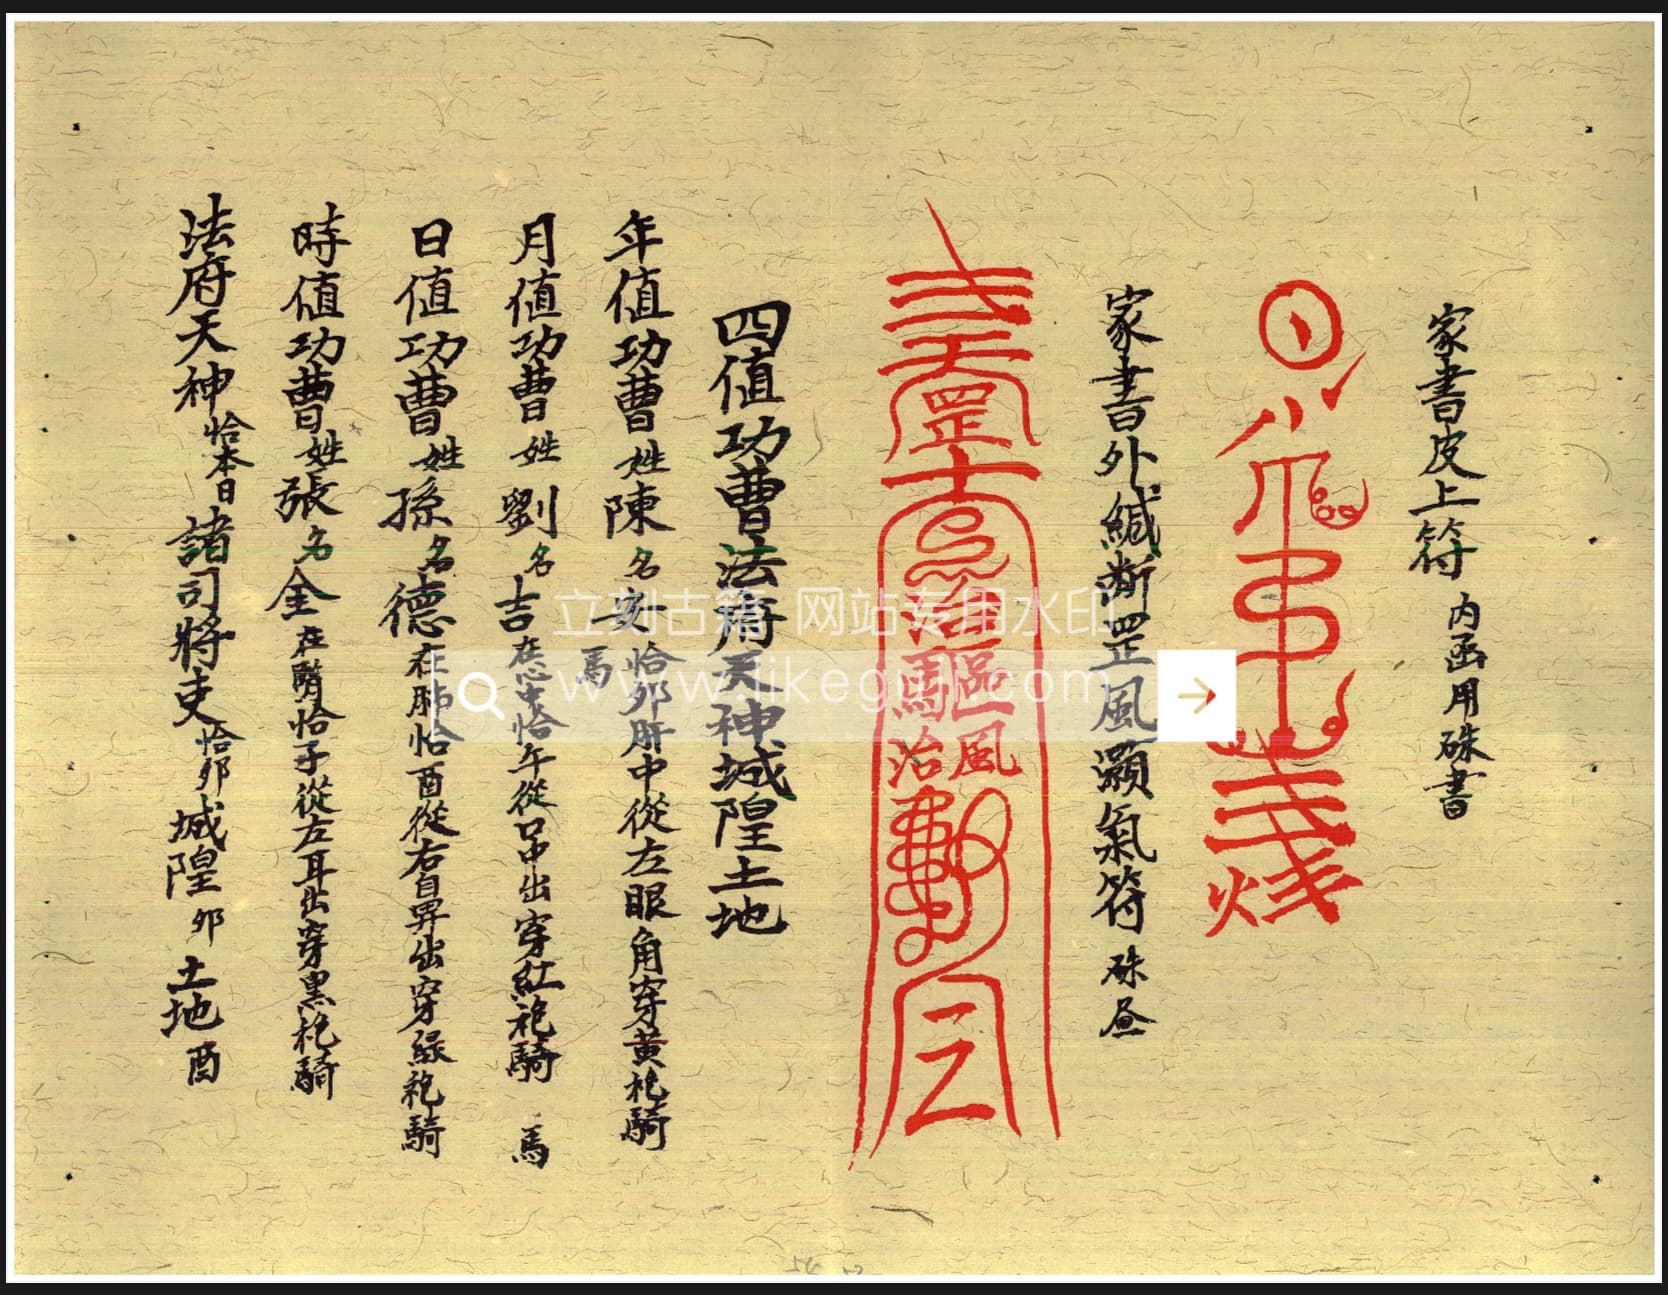 家書皮上符 内函用硃書
家書外緘断罡風灝氣符 硃昼
天罡
馬區
治風
四值功曹法府天神城隍土地
年值功曹姓陳名安恰夘肝中從左眼角穿黄袍騎
馬
月值功曹姓劉名吉在心中恰午從口中出穿紅袍騎 馬
日值功曹姓孫名德在肺恰酉從右自畀出穿緑袍騎
時值功曹姓張名全在腎恰子從左耳出穿黒袍騎
法府天神恰本日諸司將吏恰夘城隍夘土地酉
立刻古籍 网站专用水印
www.likeguji.com